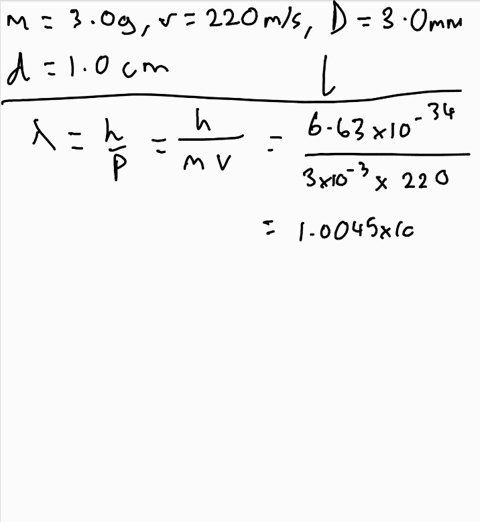 m = 3.0g, v = 220 m/s, D = 3.0mm
d = 1.0 cm L
λ = h/p = h/mv = 6.63×10^-34 / 3×10^-3 × 220
= 1.0045×10